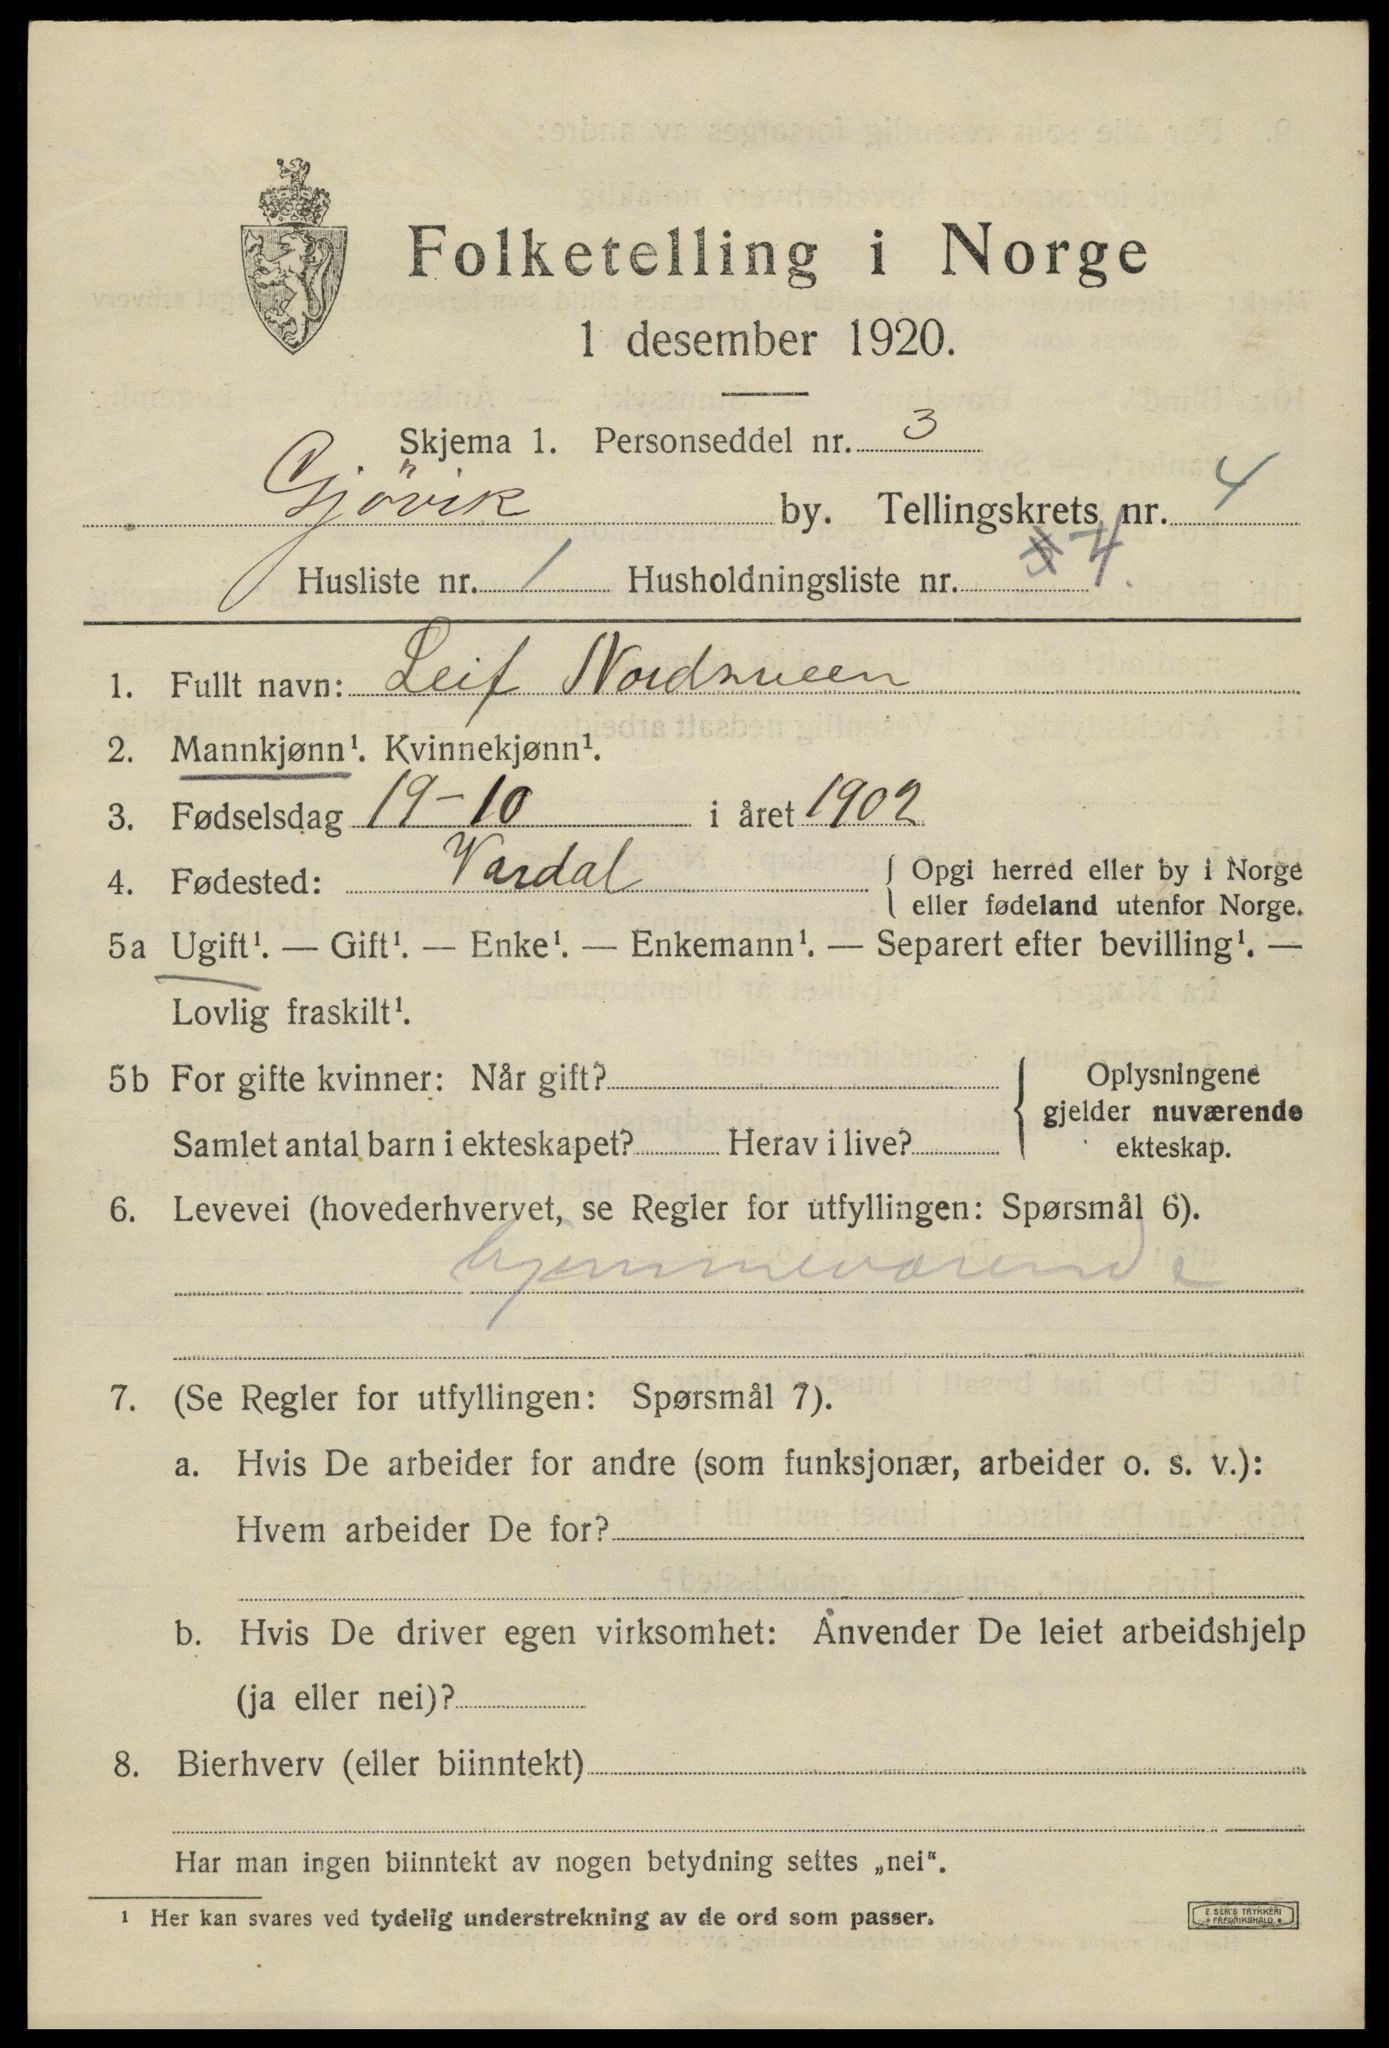 Folketelling i Norge
1 desember 1920.
Skjema 1. Personseddel nr. 3
Gjövik by. Tellingskrets nr. 4
Husliste nr. 1 Husholdningsliste nr. 4.
1. Fullt navn: Leif Nordsveen
2. Mannkjønn¹. Kvinnekjønn¹.
3. Fødselsdag 19-10 i året 1902
4. Fødested: Vardal { Opgi herred eller by i Norge
eller fødeland utenfor Norge.
5a Ugift¹. — Gift¹. — Enke¹. — Enkemann¹. — Separert efter bevilling¹. —
Lovlig fraskilt¹.
5b For gifte kvinner: Når gift? { Oplysningene
gjelder nuværende
Samlet antal barn i ekteskapet? Herav i live? ekteskap.
6. Levevei (hovederhvervet, se Regler for utfyllingen: Spørsmål 6).
hjemmeværende
7. (Se Regler for utfyllingen: Spørsmål 7).
a. Hvis De arbeider for andre (som funksjonær, arbeider o. s. v.):
Hvem arbeider De for?
b. Hvis De driver egen virksomhet: Anvender De leiet arbeidshjelp
(ja eller nei)?
8. Bierhverv (eller biinntekt)
Har man ingen biinntekt av nogen betydning settes „nei".
¹ Her kan svares ved tydelig understrekning av de ord som passer.
E. SEM'S TRYKKERI
FREDRIKSHALD